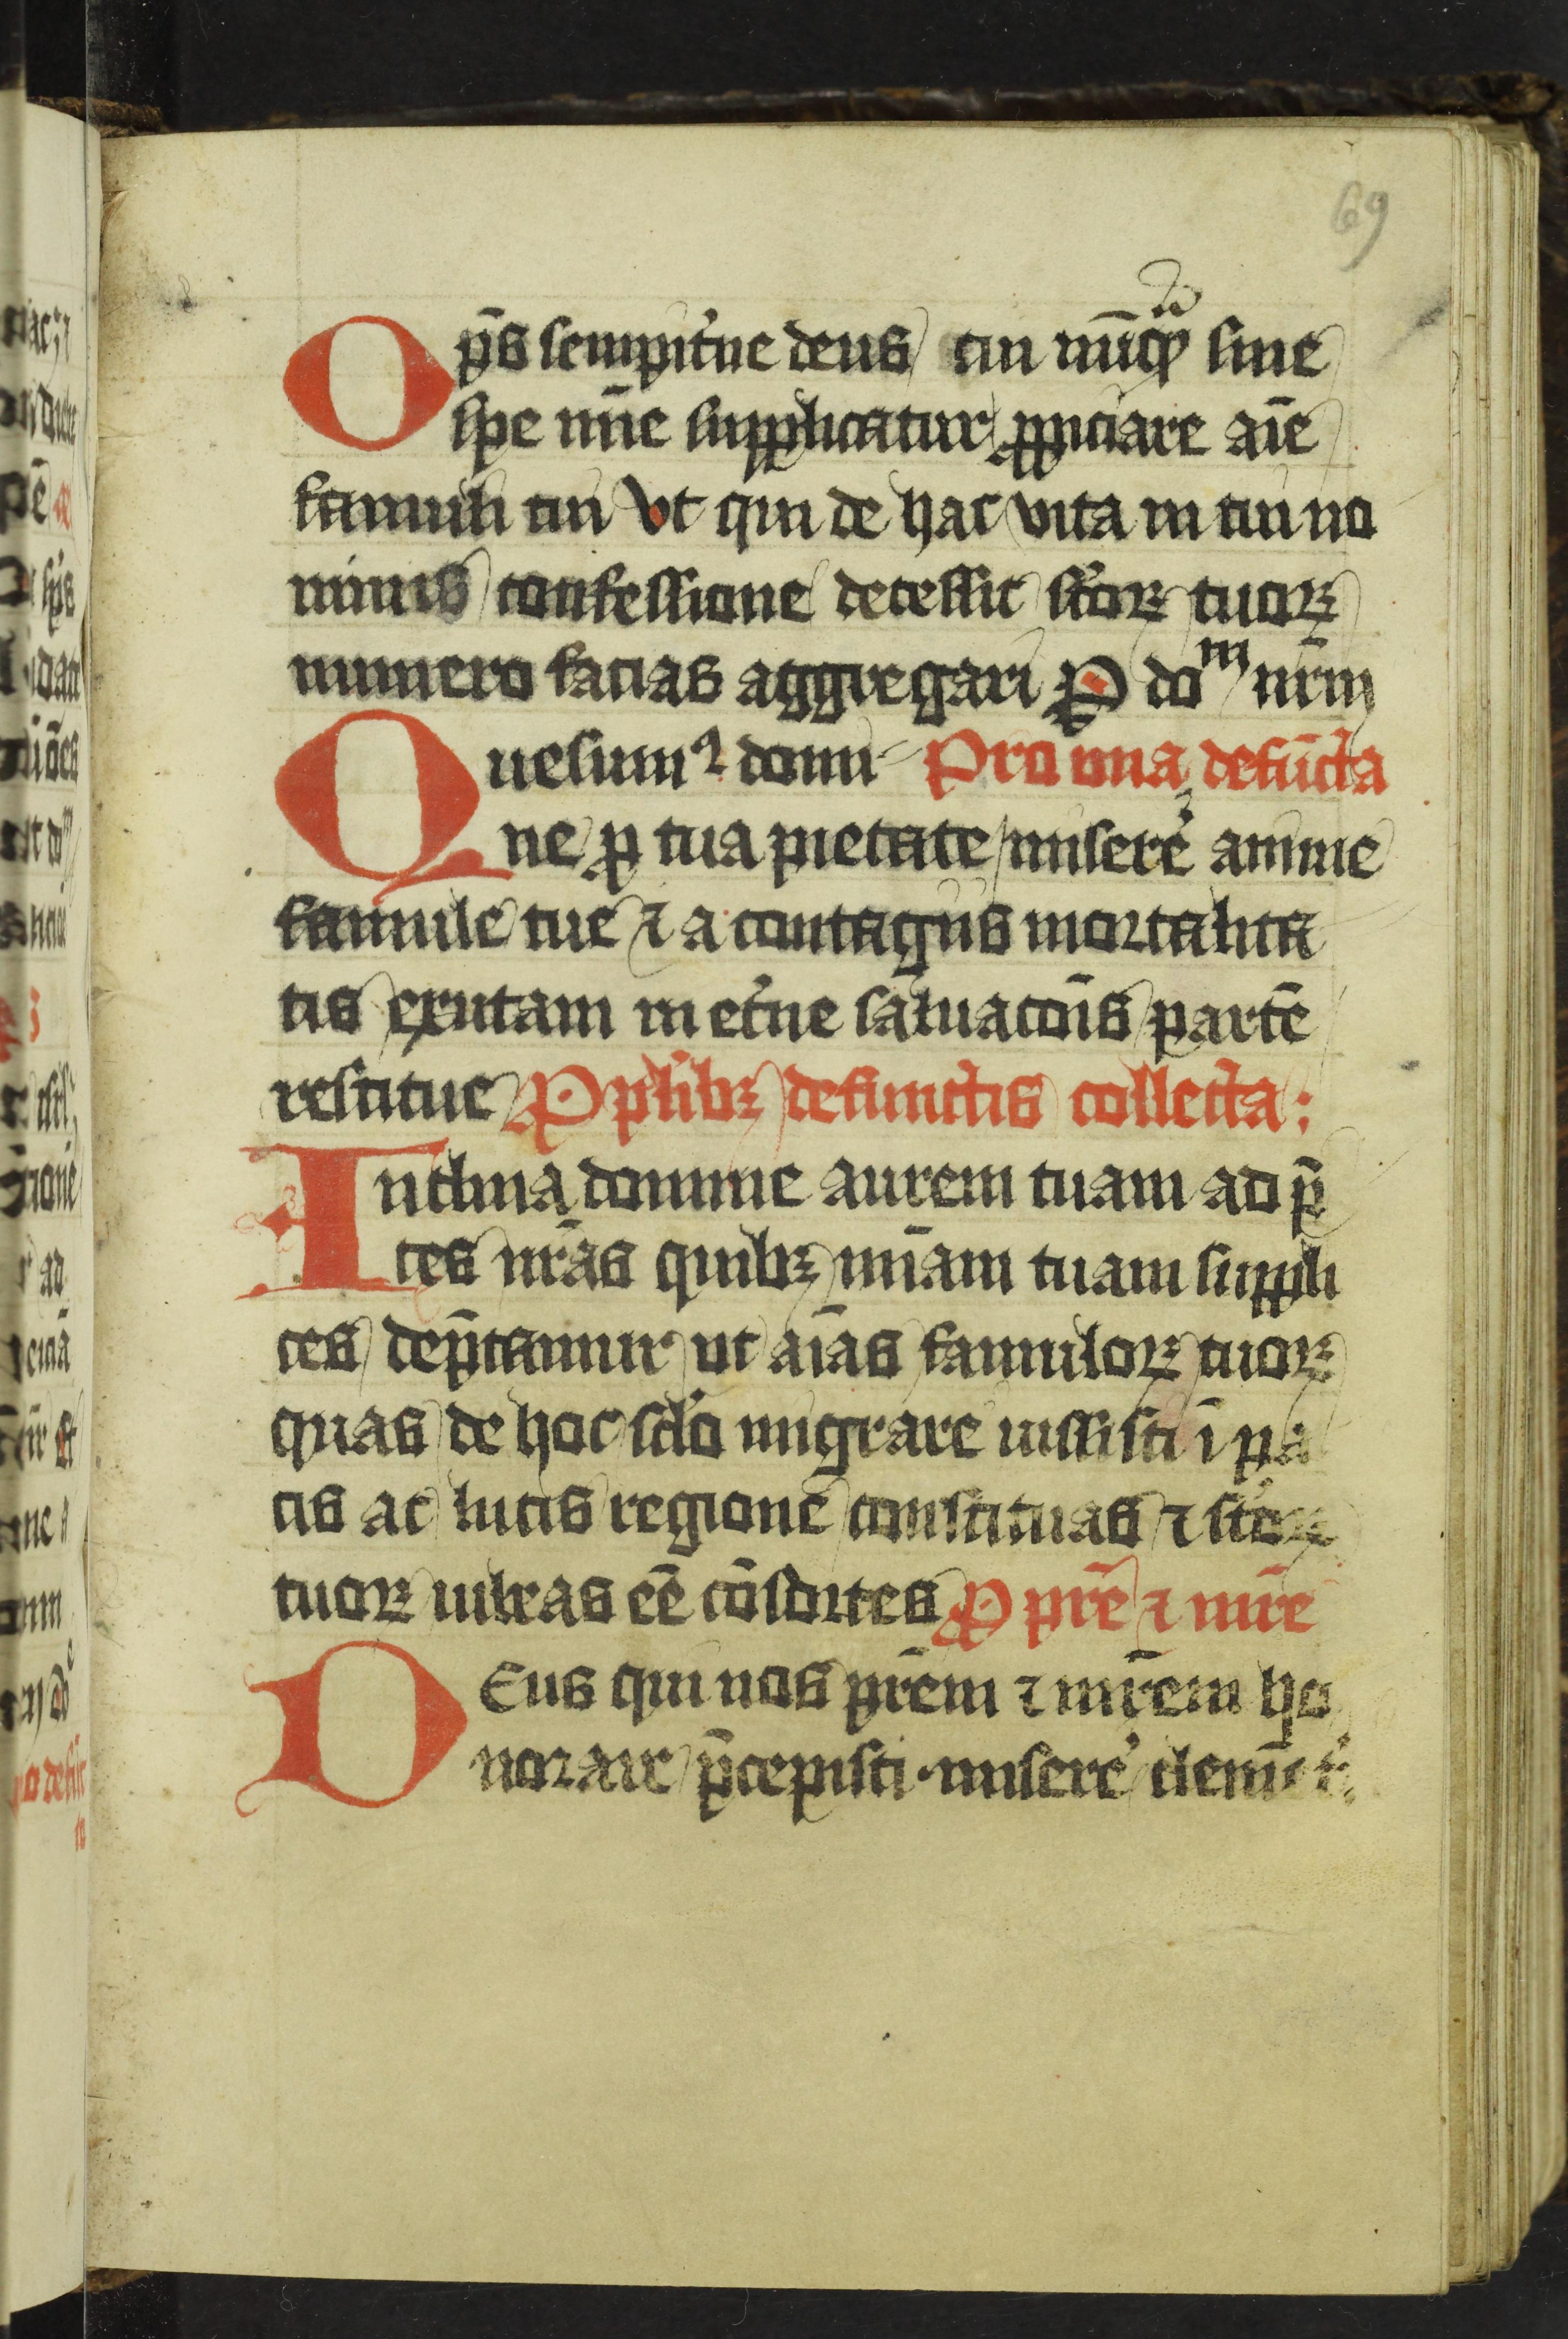 69
Op̄s sempit᷑ne deus cui nū̄qͣ sine
spe mīe supplicatur ꝓpiciare aīe
famuli tui Vt qui de hac vita in tui no
minis confessione decessit sc̄oꝝ tuoꝝ
numero facias aggregari P doᵐ nr̄m
Quesumꝰ domi Pro una defūcta
ne ꝓ tua pietate miserē anime
famule tue ⁊ a contagiis mortalita
tis exutam in et᷑ne saluacōis partē
restitue P plībꝫ defunctis collecta:
Inclina domine aurem tuam ad p̄
ces nr̄as quibꝫ mīam tuam suppli
ces dep̄camur ut aīas famuloꝝ tuoꝝ
quas de hoc sclo migrare iussisti ī pa
cis ac lucis regione constituas ⁊ sc̄oꝝ
tuoꝝ iubeas eē cōsortes P pr̄e ⁊ mr̄e
DEus qui nos pr̄em ⁊ mr̄em ho
norare p̄cepisti · miserē clemēt᷑